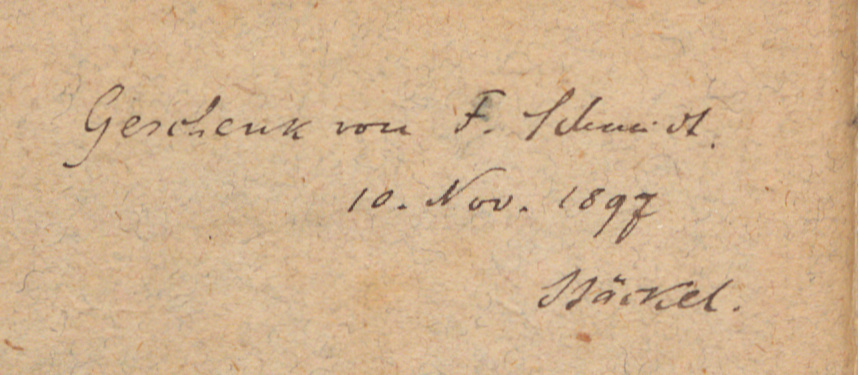 Geschenk von F. Schmidt.
10. Nov. 1897
Stäckel.